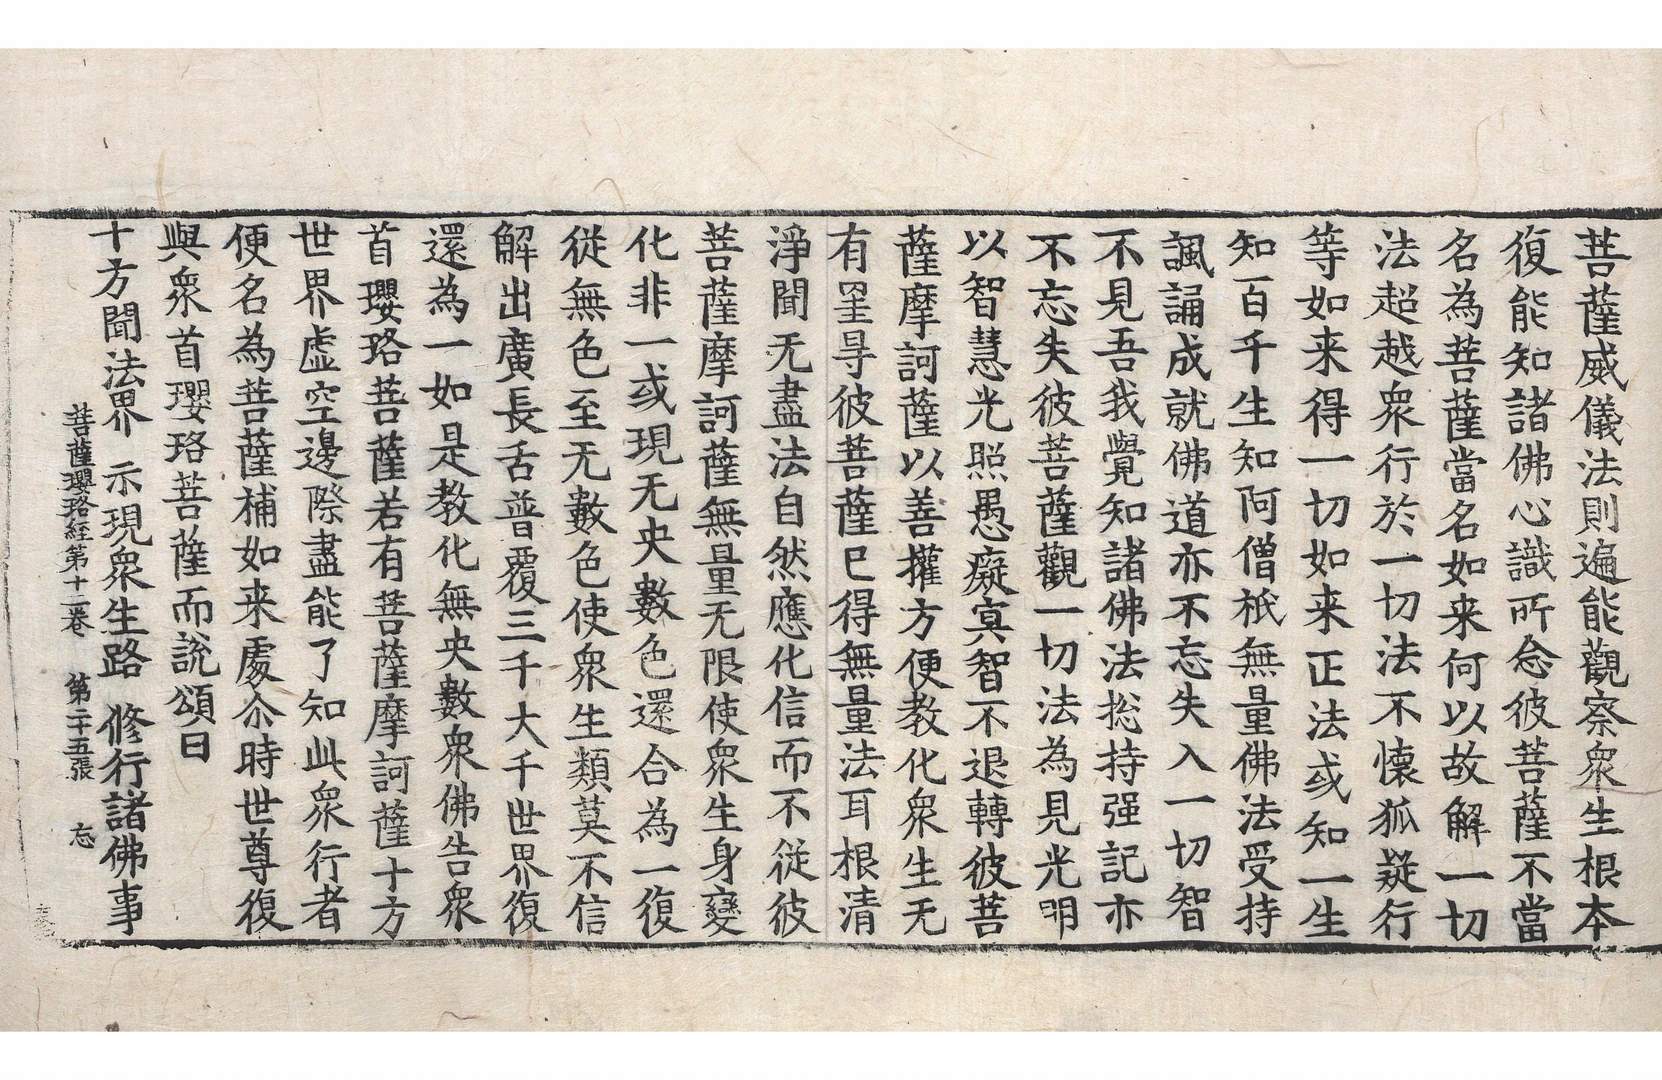 菩薩威儀法則遍能觀察衆生根本
復能知諸佛心識所念彼菩薩不當
名為菩薩當名如来何以故解一切
法超越衆行於一切法不懐狐疑行
等如来得一切如来正法或知一生
知百千生知阿僧祇無量佛法受持
諷誦成就佛道亦不忘失入一切智
不見吾我覺知諸佛法捴持强記亦
不忘失彼菩薩觀一切法為見光明
以智慧光照愚癡冥智不退轉彼菩
薩摩訶薩以善權方便教化衆生无
有罣㝵彼菩薩已得無量法耳根清
淨聞无盡法自然應化信而不従彼
菩薩摩訶薩無量无限使衆生身變
化非一或現无央數色還合為一復
從無色至无數色使衆生類莫不信
解出廣長舌普覆三千大千世界復
還為一如是教化無央數衆佛告衆
首瓔珞菩薩若有菩薩摩訶薩十方
世界虚空邊際盡能了知此衆行者
便名為菩薩補如来處尒時世尊復
與衆首瓔珞菩薩而說頌曰
十方聞法界 示現衆生路 修行諸佛事
菩薩瓔珞經第十二卷 第二十五張 忘